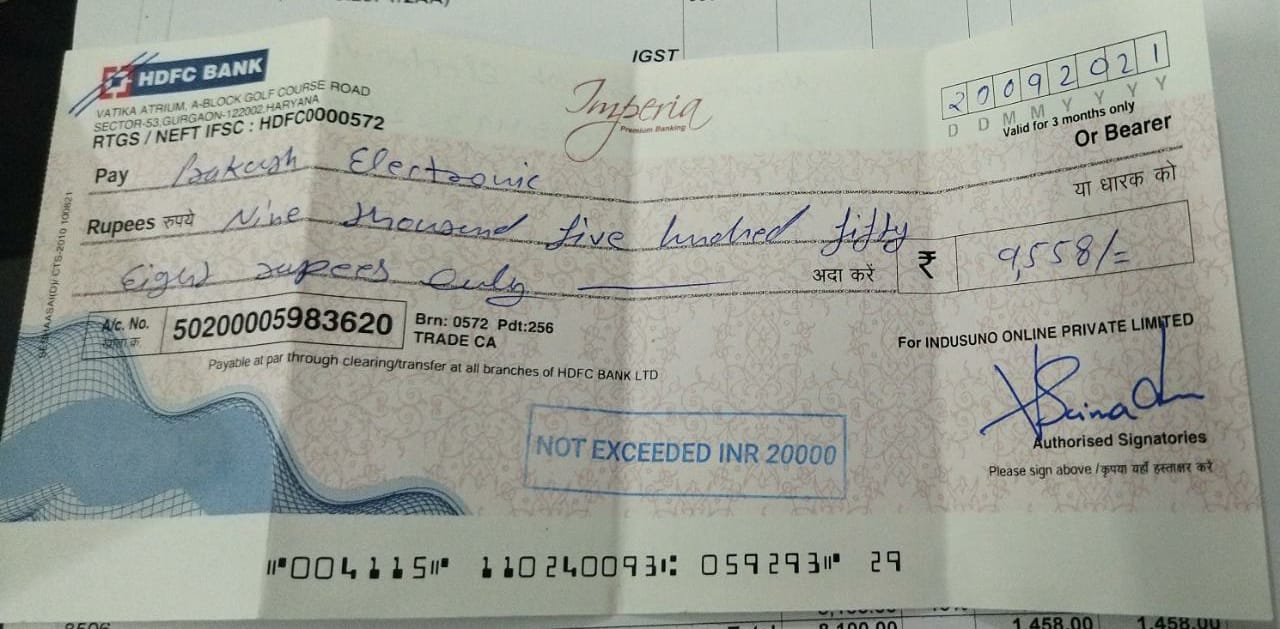 IGST
HDFC BANK
VATIKA ATRIUM, A-BLOCK GOLF COURSE ROAD
SECTOR-53, GURGAON-122002, HARYANA
RTGS / NEFT IFSC : HDFC0000572
Imperia
Premium Banking
20092021
D D M M Y Y Y Y
Valid for 3 months only
Or Bearer
या धारक को
Pay Prakash Electronic
Rupees रुपये Nine thousand five hundred fifty
Eight rupees only
अदा करें ₹ 9,558/=
A/c. No. 50200005983620
Brn: 0572 Pdt:256
TRADE CA
Payable at par through clearing/transfer at all branches of HDFC BANK LTD
For INDUSUNO ONLINE PRIVATE LIMITED
NOT EXCEEDED INR 20000
Authorised Signatories
Please sign above / कृपया यहाँ हस्ताक्षर करें
⑈004115⑈ 110240093⑆ 059293⑈ 29
1,458.00 1,458.00